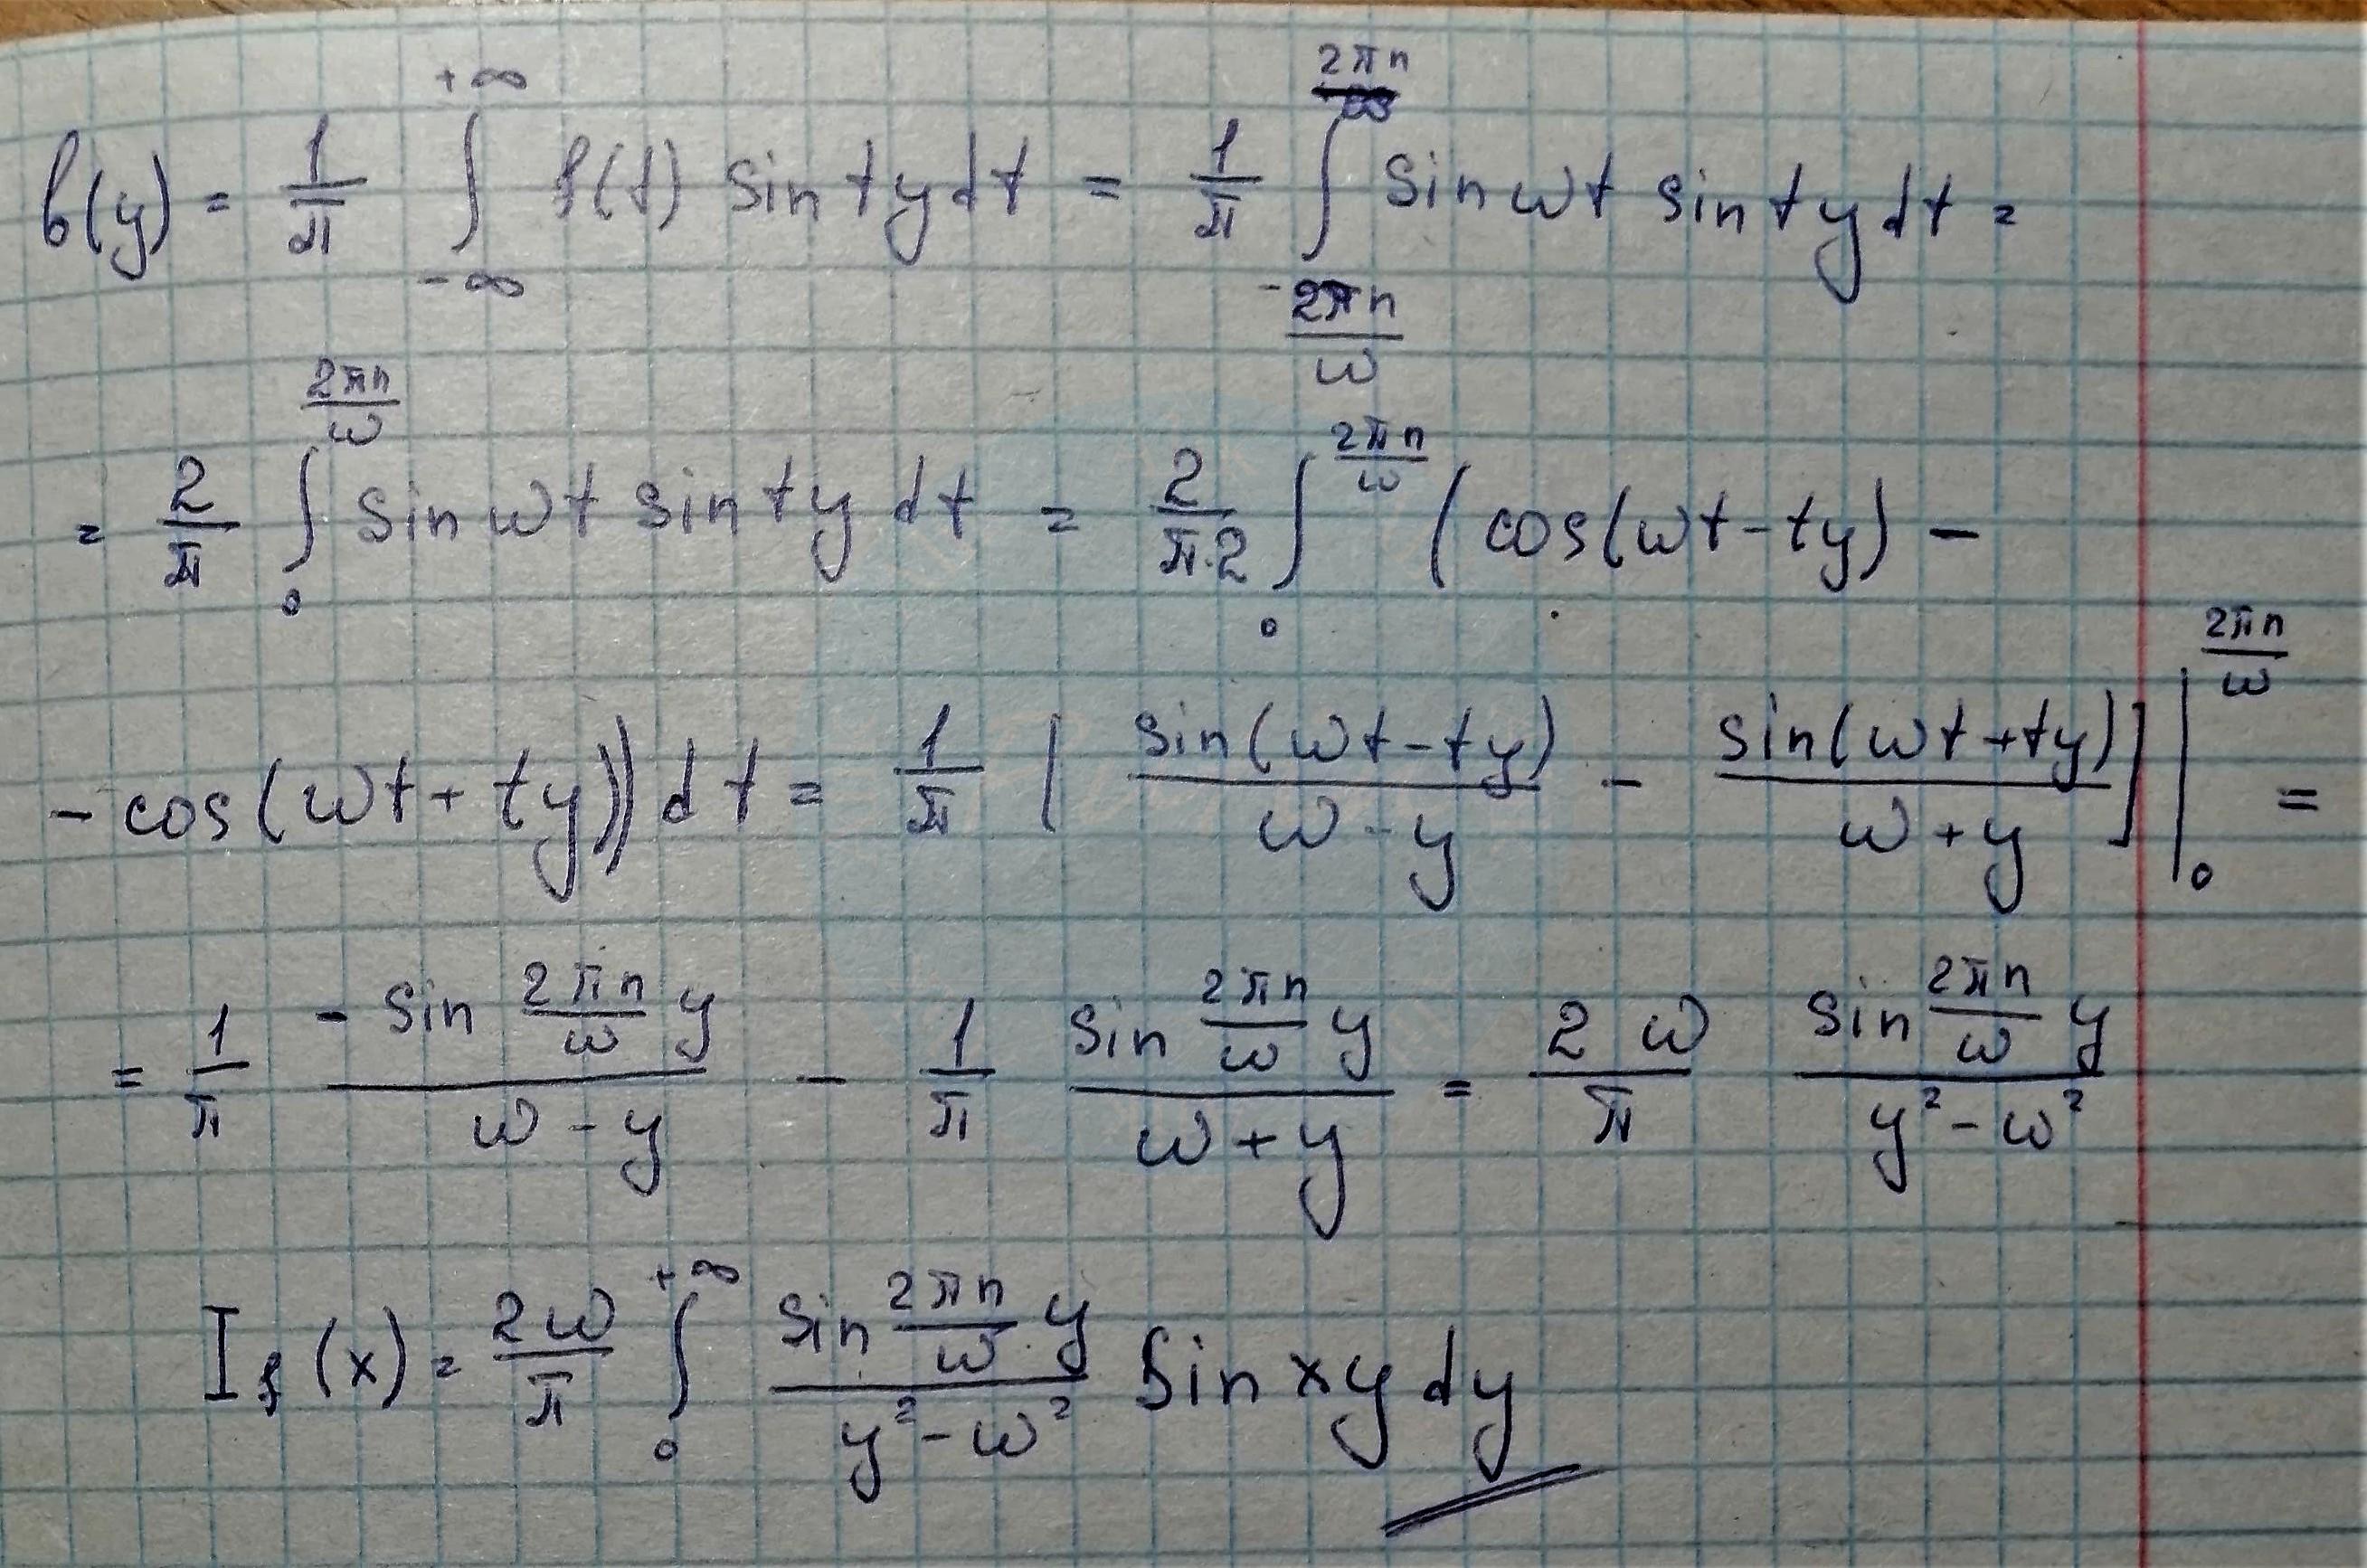 b(y) = \frac{1}{π} \int_{-∞}^{+∞} f(t) sin ty dt = \frac{1}{π} \int_{-\frac{2πn}{ω}}^{\frac{2πn}{ω}} sin ωt sin ty dt =
= \frac{2}{π} \int_{0}^{\frac{2πn}{ω}} sin ωt sin ty dt = \frac{2}{π·2} \int_{0}^{\frac{2πn}{ω}} (cos(ωt-ty) -
- cos(ωt+ty)) dt = \frac{1}{π} [ \frac{sin(ωt-ty)}{ω-y} - \frac{sin(ωt+ty)}{ω+y} ] |_{0}^{\frac{2πn}{ω}} =
= \frac{1}{π} \frac{- sin \frac{2πn}{ω} y}{ω-y} - \frac{1}{π} \frac{sin \frac{2πn}{ω} y}{ω+y} = \frac{2ω}{π} \frac{sin \frac{2πn}{ω} y}{y^2-ω^2}
I_f(x) = \frac{2ω}{π} \int_{0}^{+∞} \frac{sin \frac{2πn}{ω} y}{y^2-ω^2} sin xy dy